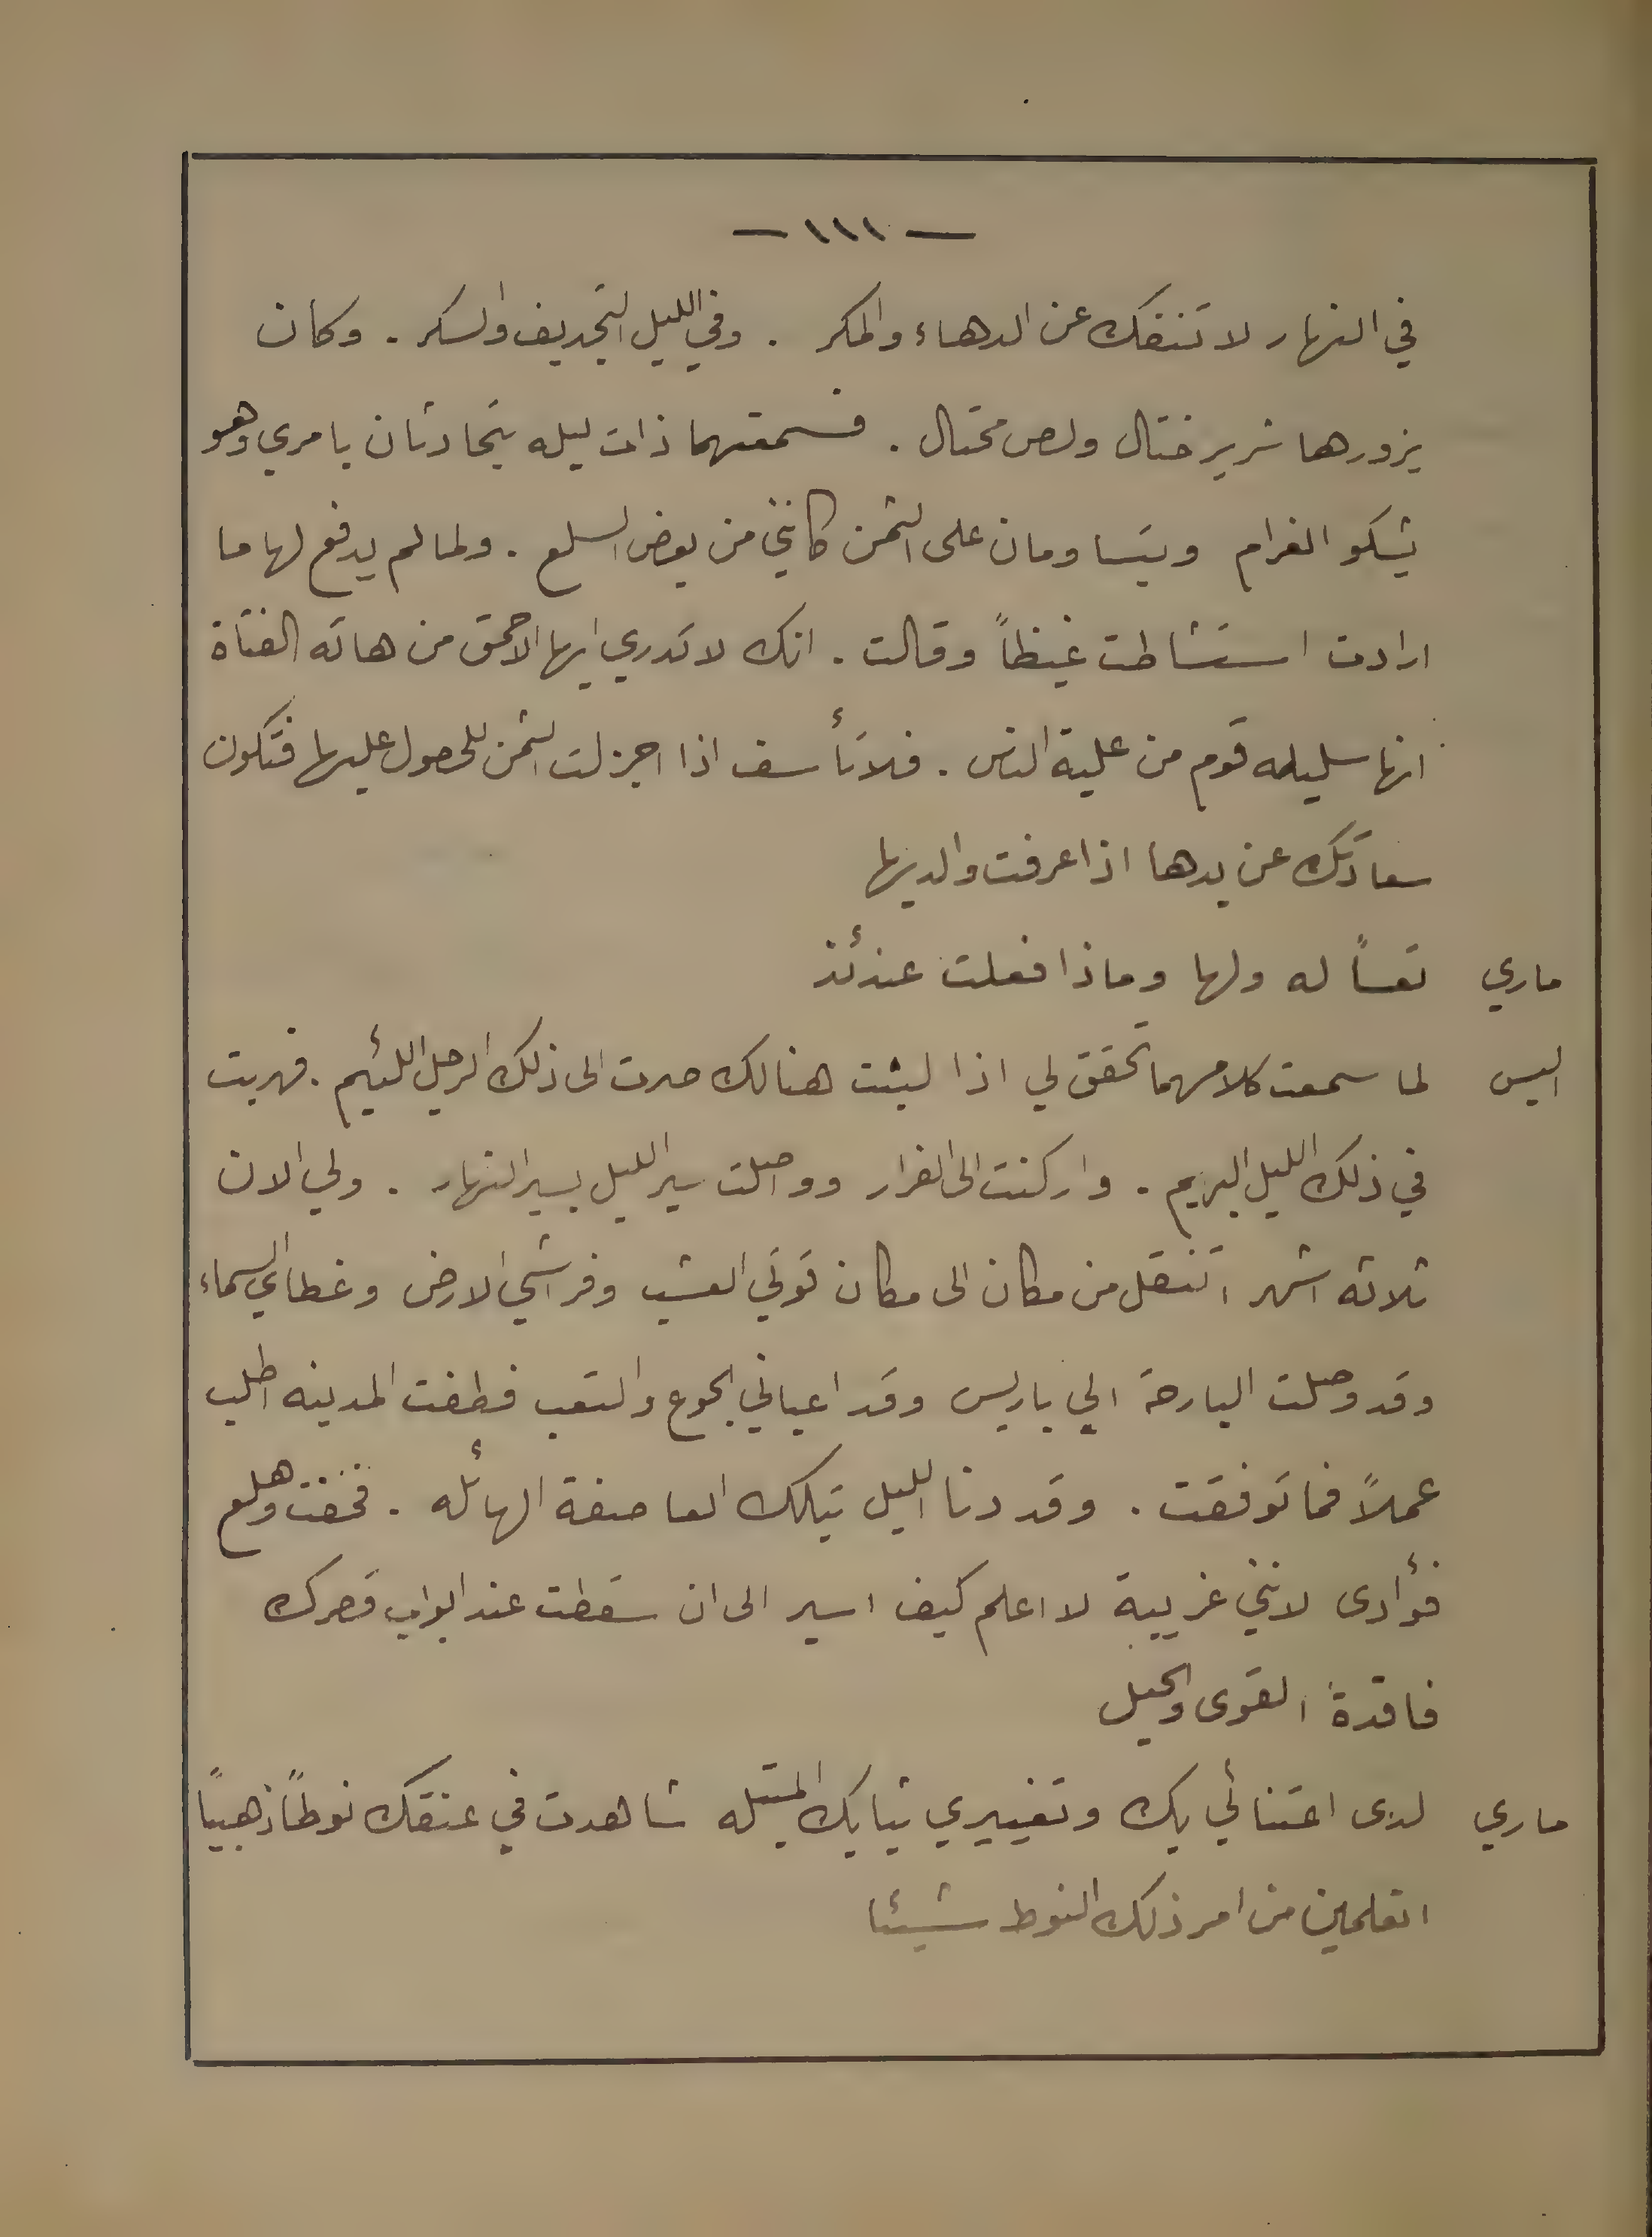 — ١١١ —
في النهار لا تنفك عن الدهاء والمكر . وفي الليل التجديف والسكر . وكان
يزورها شرير ختال ولص محتال . فسمعتهما ذات ليله يتحادثان بامري وهو
يشكو الغرام ويتساومان على الثمن كانني من بعض السلع . ولما لم يدفع لها ما
ارادت استشاطت غيظاً وقالت . انك لا تدري ايها الاحمق من هاته الفتاة
انها سليله قوم من علية الناس . فلا تأسف اذا اجزلت الثمن للحصول عليها فتكون
سعادتك عن يدها اذا عرفت والديها
ماري تعساً له ولها وماذا فعلت عندئذ
اليس لما سمعت كلامهما تحقق لي اذا لبثت هنالك صرت الى ذلك الرجل اللئيم . فهربت
في ذلك الليل البهيم . واركنت الى الفرار وواصلت سير الليل بسير النهار . ولي الان
ثلاثه اشهر اتنقل من مكان الى مكان قوتي العشب وفراشي الارض وغطاي السماء
وقد وصلت البارحة الي باريس وقد اعياني الجوع والتعب فطفت المدينه اطلب
عملاً فما توفقت . وقد دنا الليل بتلك العاصفة الهائله . فخفت وهلع
فؤادى لانني غريبة لا اعلم كيف اسير الى ان سقطت عند ابواب قصرك
فاقدة القوى والحيل
ماري لدى اعتنائي بك وتغييري ثيابك المبتله شاهدت في عنقك نوطاً ذهبياً
اتعلمين من امر ذلك النوط شيئا